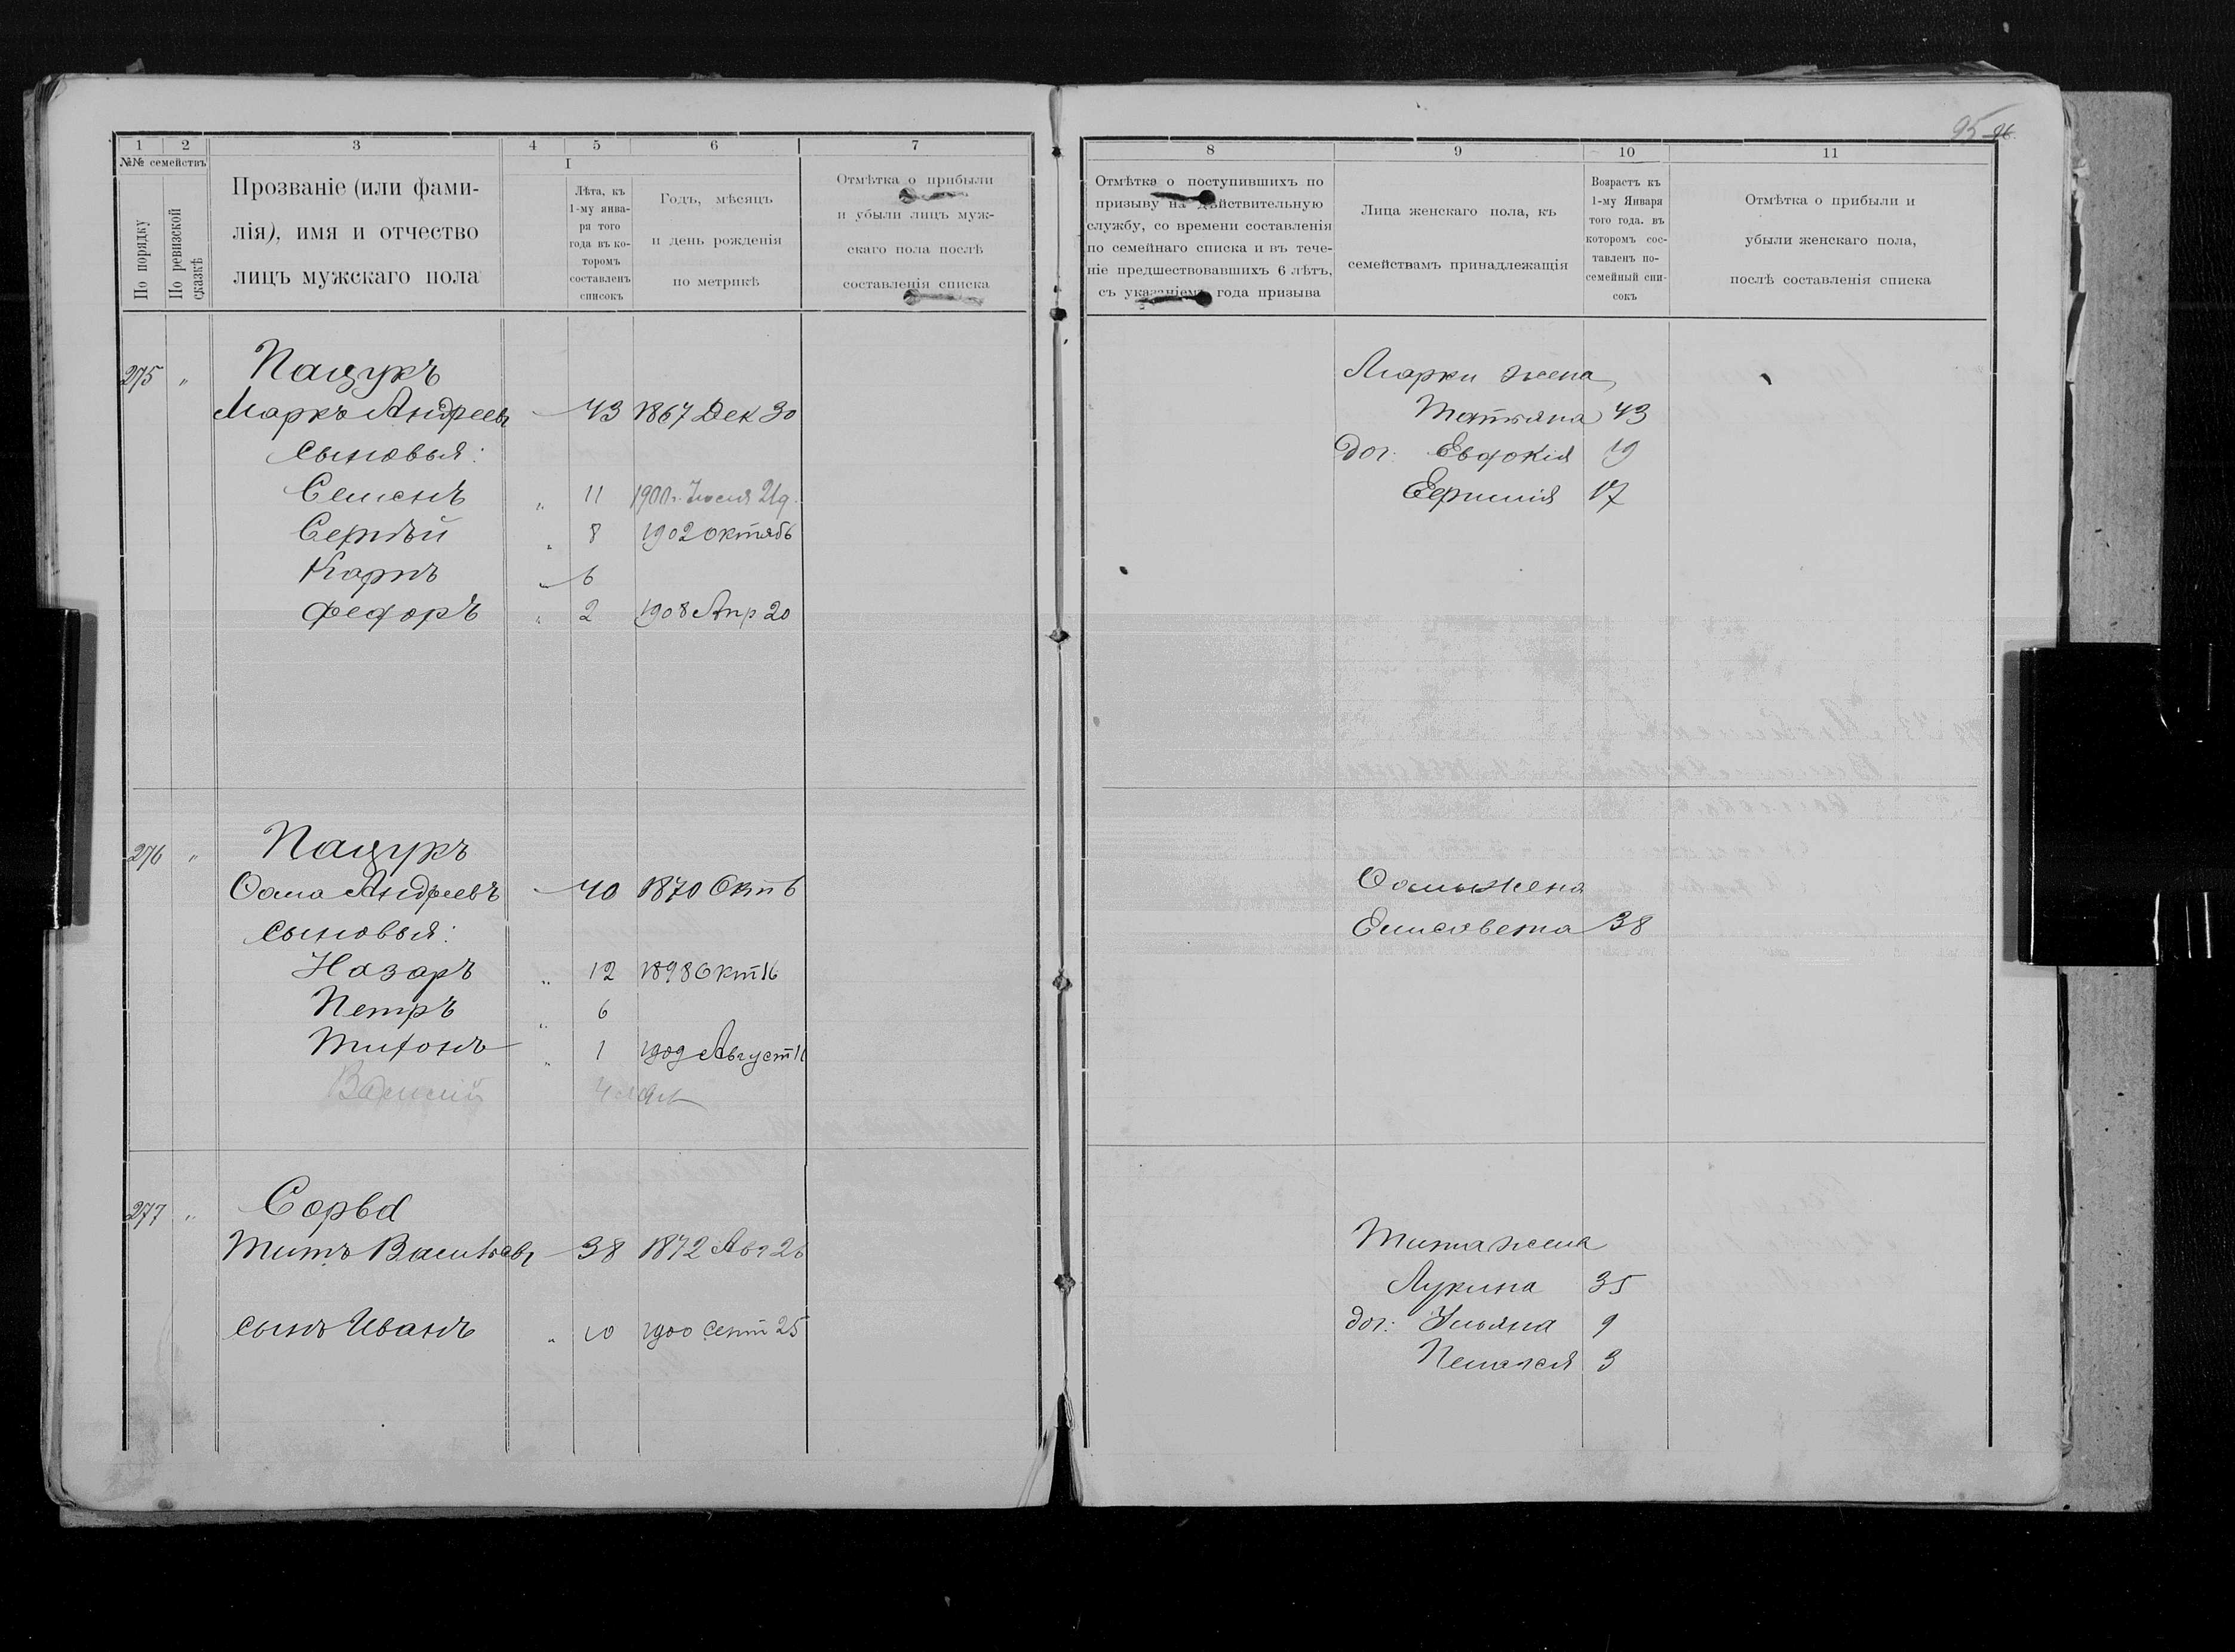 95 96.
1 2 3 4 5 6 7
№№ семействъ
По порядку
По ревизской сказкѣ
Прозваніе (или фами-
лія), имя и отчество
лицъ мужскаго пола
I
Лѣта, къ
1-му янва-
ря того
года въ ко-
торомъ
составленъ
списокъ
Годъ, мѣсяцъ
и день рожденія
по метрикѣ
Отмѣтка о прибыли
и убыли лицъ муж-
скаго пола послѣ
составленія списка
8 9 10 11
Отмѣтка о поступившихъ по
призыву на дѣйствительную
службу, со времени составленія
по семейнаго списка и въ тече-
ніе предшествовавшихъ 6 лѣтъ,
съ указаніемъ года призыва
Лица женскаго пола, къ
семействамъ принадлежащія
Возрастъ къ
1-му Января
того года. въ
которомъ сос-
тавленъ по-
семейный спи-
сокъ
Отмѣтка о прибыли и
убыли женскаго пола,
послѣ составленія списка
275 " Пацукъ
Маркъ Андреевъ 43 1867 Дек 30
сыновья:
Семенъ " 11 1900 г. Іюля 21 д.
Сергѣй " 8 1902 октяб
Карпъ " 6
Федоръ " 2 1908 Апр 20
Марки жена
Татьяна 43
доч. Евдокія 19
17
276 " Пацукъ
Ѳома Андреевъ 40 1870 Окт 6
сыновья:
Назаръ " 12 1898 Окт 16
Петръ " 6
Тихонъ " 1 1909 Август 11
Василій
Ѳомы жена
Елисавета 38
277 " Сорва
Титъ Васильевъ 38 1872 Авг 26
сынъ Иванъ " 10 1900 Сент 25
Тита жена
Лукина 35
доч: Ульяна 9
Пелагея 3